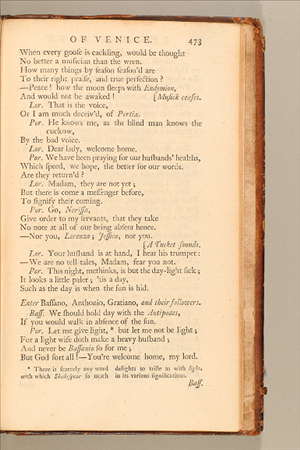 OF VENICE. 473
When every gooſe is cackling, would be thought
No better a muſician than the wren.
How many things by ſeaſon ſeaſon'd are
To their right praiſe, and true perfection?
—Peace! how the moon ſleeps with Endymion,
And would not be awaked! [Muſick ceaſes.
Lor. That is the voice,
Or I am much deceiv'd, of Portia.
Por. He knows me, as the blind man knows the
cuckow,
By the bad voice.
Lor. Dear lady, welcome home.
Por. We have been praying for our huſbands' healths,
Which ſpeed, we hope, the better for our words.
Are they return'd?
Lor. Madam, they are not yet;
But there is come a meſſenger before,
To ſignify their coming.
Por. Go, Neriſſa,
Give order to my ſervants, that they take
No note at all of our being abſent hence.
—Nor you, Lorenzo; Jeſſica, nor you.
[A Tucket ſounds.
Lor. Your huſband is at hand, I hear his trumpet:
—We are no tell tales, Madam, fear you not.
Por. This night, methinks, is but the day-light ſick;
It looks a little paler; 'tis a day,
Such as the day is when the ſun is hid.
Enter Baſſanio, Anthonio, Gratiano, and their followers.
Baſſ. We ſhould hold day with the Antipodes,
If you would walk in abſence of the ſun.
Por. Let me give light, * but let me not be light;
For a light wife doth make a heavy huſband;
And never be Baſſanio ſo for me;
But God ſort all!—You're welcome home, my lord.
* There is ſcarcely any word delights to trifle as with light,
with which Shakeſpear ſo much in its various ſignifications.
Baſſ.